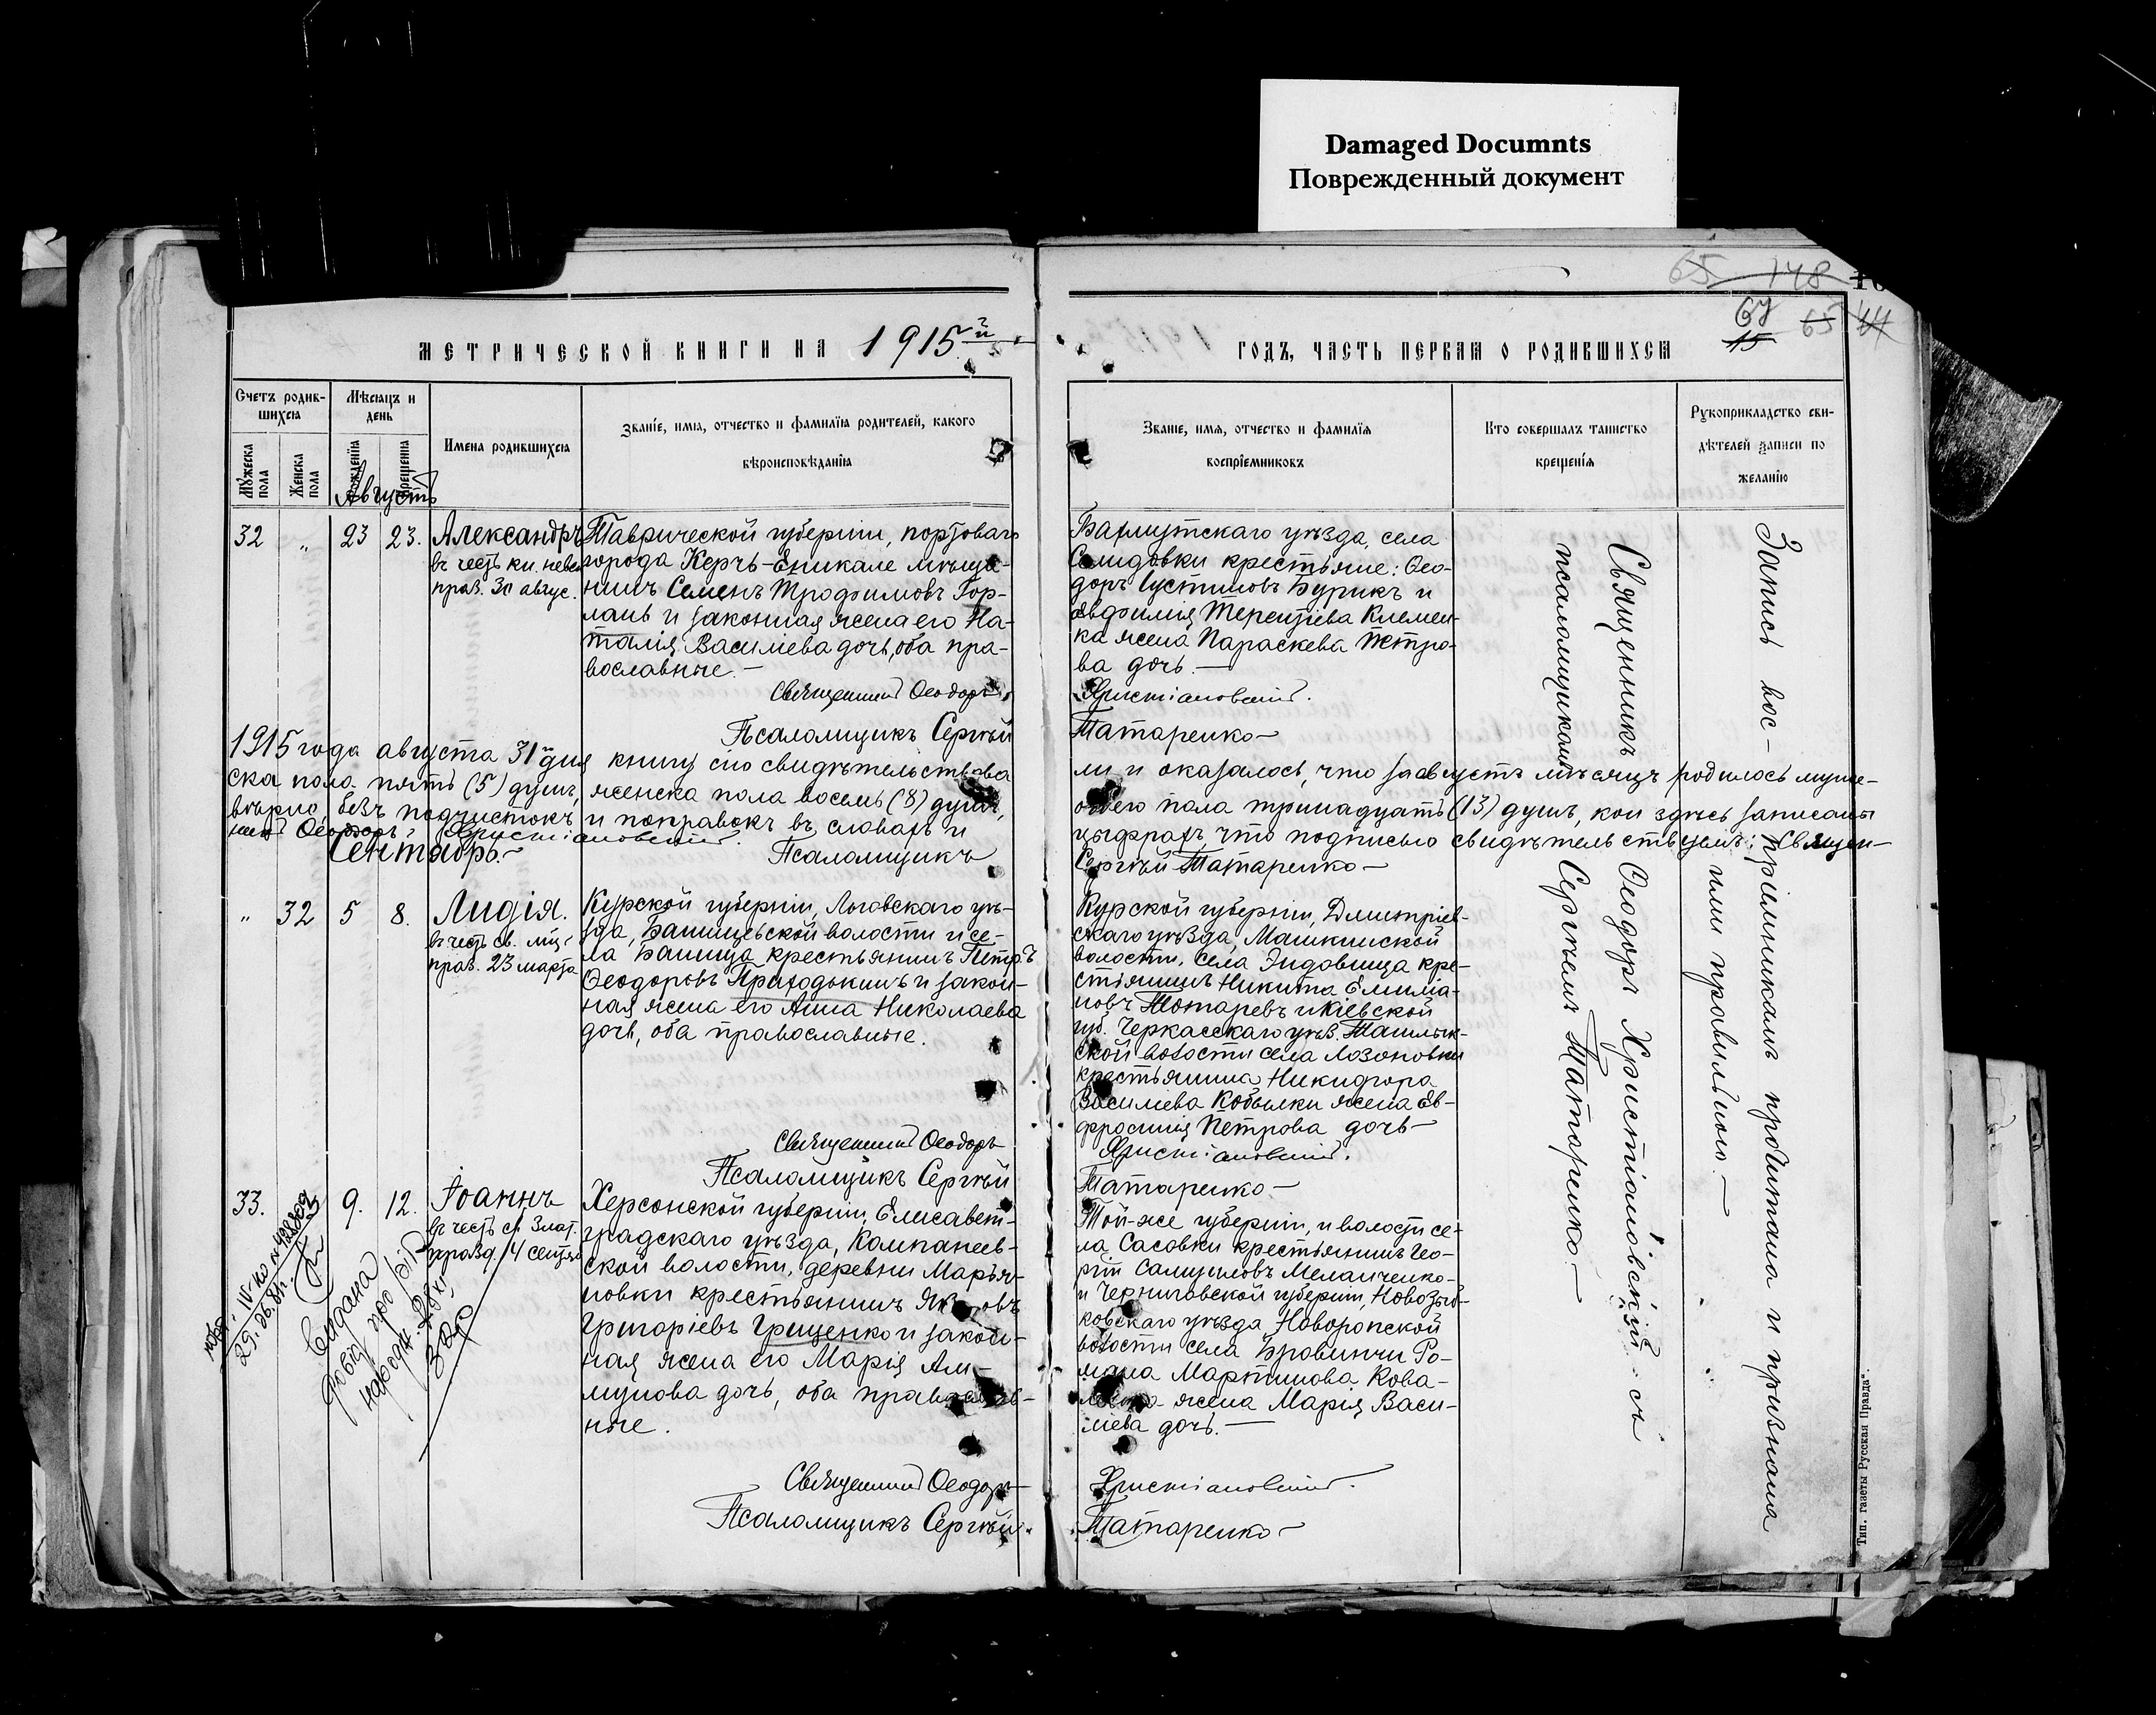 Damaged Documnts
Поврежденный документ
65 148
67 65
15
МЕТРИЧЕСКОЙ КНИГИ НА 1915й
ГОДЪ, ЧАСТЬ ПЕРВАЯ О РОДИВШИХСЯ
Счетъ родив-
шихся
Мужеска пола
Женска пола
Мѣсяцъ и
день
Рожденія
Крещенія
Имена родившихся
Званіе, имя, отчество и фамилія родителей, какого
вѣроисповѣданія
Званіе, имя, отчество и фамилія
воспріемниковъ
Кто совершалъ таинство
крещенія
Рукоприкладство сви-
дѣтелей записи по
желанію
Августъ
32 „ 23 23.
Александръ
въ честь кн. невск
праз. 30 авгус.
Таврической губерніи, портоваго
города Керчь-Еникале мѣща-
нинъ Семенъ Трофимовъ Гор-
лань и законная жена его На-
талія Василіева дочь, оба пра-
вославные. —
Священникъ Ѳеодоръ
Псаломщикъ Сергѣй
Бахмутскаго уѣзда, села
Селидовки крестьяне: Ѳео-
доръ Іустиновъ Бурикъ и
Евфимія Терентіева Клемен-
ка жена Параскева Петро-
ва дочь. —
Христіановскій.
Татаренко —
1915 года августа 31 дня книгу сію свидѣтельствова
ли и оказалось, что за августъ мѣсяцъ родилось муже-
ска пола пять (5) душъ, женска пола восемь (8) душъ,
обоего пола тринадцать (13) душъ, кои здѣсь записаны
вѣрно, безъ подчистокъ и поправокъ въ словахъ и
цыфрахъ что подписью свидѣтельствуемъ: Священ-
никъ Ѳеодоръ Христіановскій.
Псаломщикъ
Сергѣй Татаренко —
Сентябрь. —
„ 32 5 8.
Лидія.
въ честь св. мц.
праз. 23 марта
Курской губерніи, Льговскаго уѣ-
зда, Банищевской волости и се-
ла Банища крестьянинъ Петръ
Ѳеодоровъ Приходькинъ и закон-
ная жена его Анна Николаева
дочь, оба православные.
Священникъ Ѳеодоръ
Псаломщикъ Сергѣй
Курской губерніи, Дмитріев-
скаго уѣзда, Машкинской
волости, села Эидовища кре-
стьянинъ Никита Емиліа-
новъ Токаревъ и Кіевской
губ. Черкасскаго уѣз. Ташлык-
ской волости села Лозоновки
крестьянина Никифора
Василіева Кобылки жена Ев-
фросинія Петрова дочь —
Христіановскій.
Татаренко —
33. 9. 12.
Іоаннъ
въ честь св. Злат.
празд. 14 сентяб
Херсонской губерніи, Елисавет-
градскаго уѣзда, Компанеев-
ской волости, деревни Марья-
новки крестьянинъ Яковъ
Григоріевъ Грищенко и закон-
ная жена его Марія Ам-
мунова дочь, оба православ-
ные.
Священникъ Ѳеодоръ
Псаломщикъ Сергѣй.
Той-же губерніи, и волости се-
ла Сасовки крестьянинъ Гео-
ргій Самуиловъ Меланченко
и Черниговской губерніи, Новозыб-
ковскаго уѣзда Новоропской
волости села Бровничи Ро-
мана Мартинова Кова-
жена Марія Васи-
лева дочь. —
Христіановскій.
Татаренко —
видана
довід про
народж.
29.06.81.
Священникъ Ѳеодоръ Христіановскій съ
псаломщикомъ Сергѣемъ Татаренко —
Запись вос-
пріемникамъ прочитана и признана
ими правильною. —
Тип. газеты Русская Правда“.